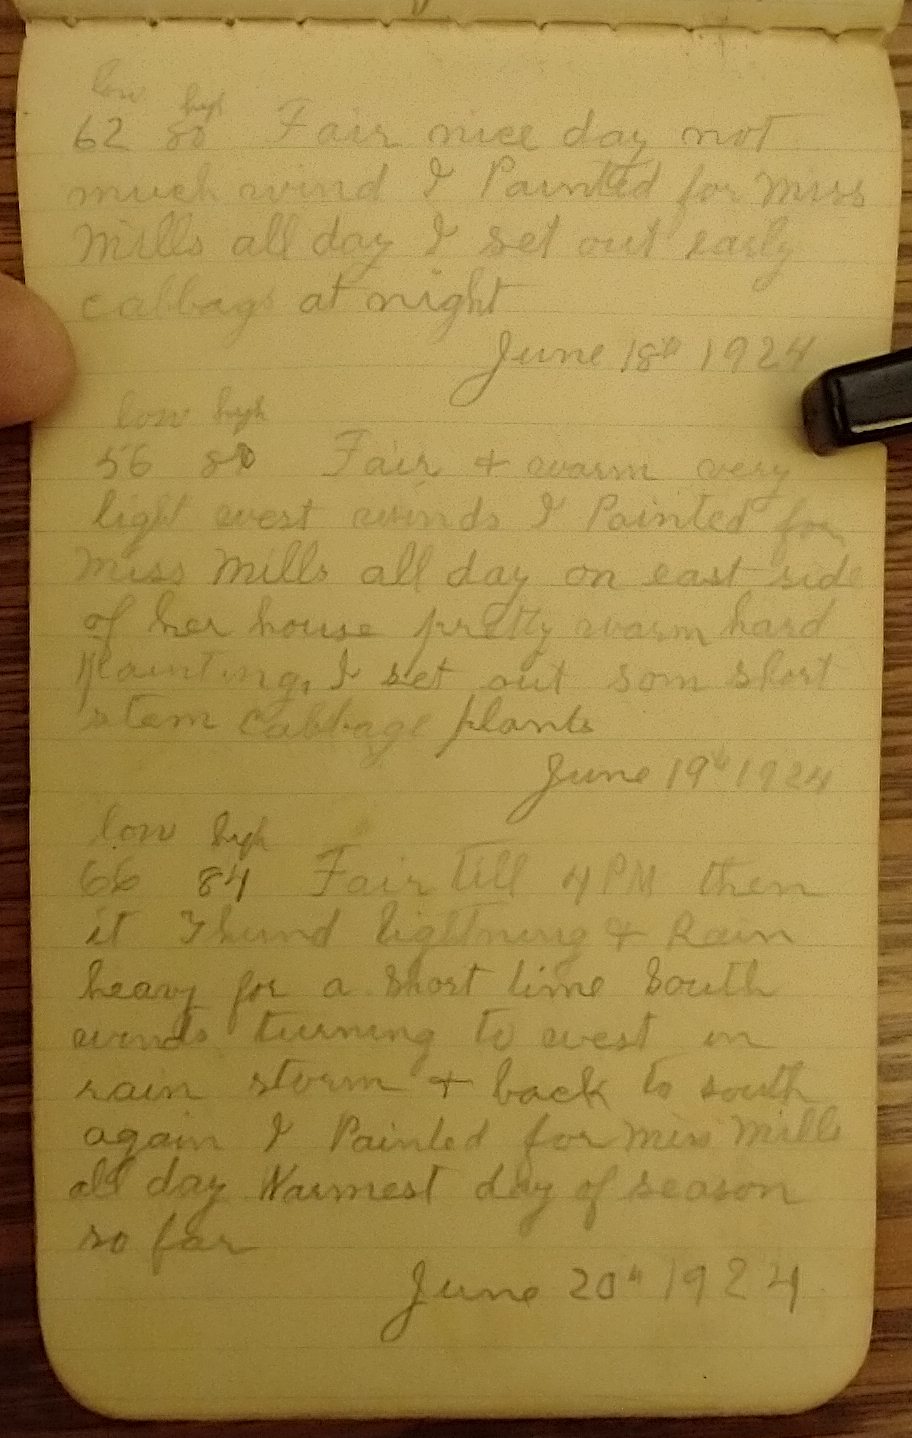 low high
62 80 Fair nice day not
much wind I Painted for Miss
Mills all day I set out early
cabbags at night
June 18th 1924
low high
56 80 Fair + warm very
light west winds I Painted for
Miss Mills all day on east side
of her house pretty warm hard
Painting, I set out som short
stem Cabbage plants
June 19th 1924
low high
66 84 Fair till 4 PM then
it Thund lightning + Rain
heavy for a short time South
winds turning to west in
rain storm + back to south
again I Painted for Miss Mills
all day Warmest day of season
so far
June 20th 1924